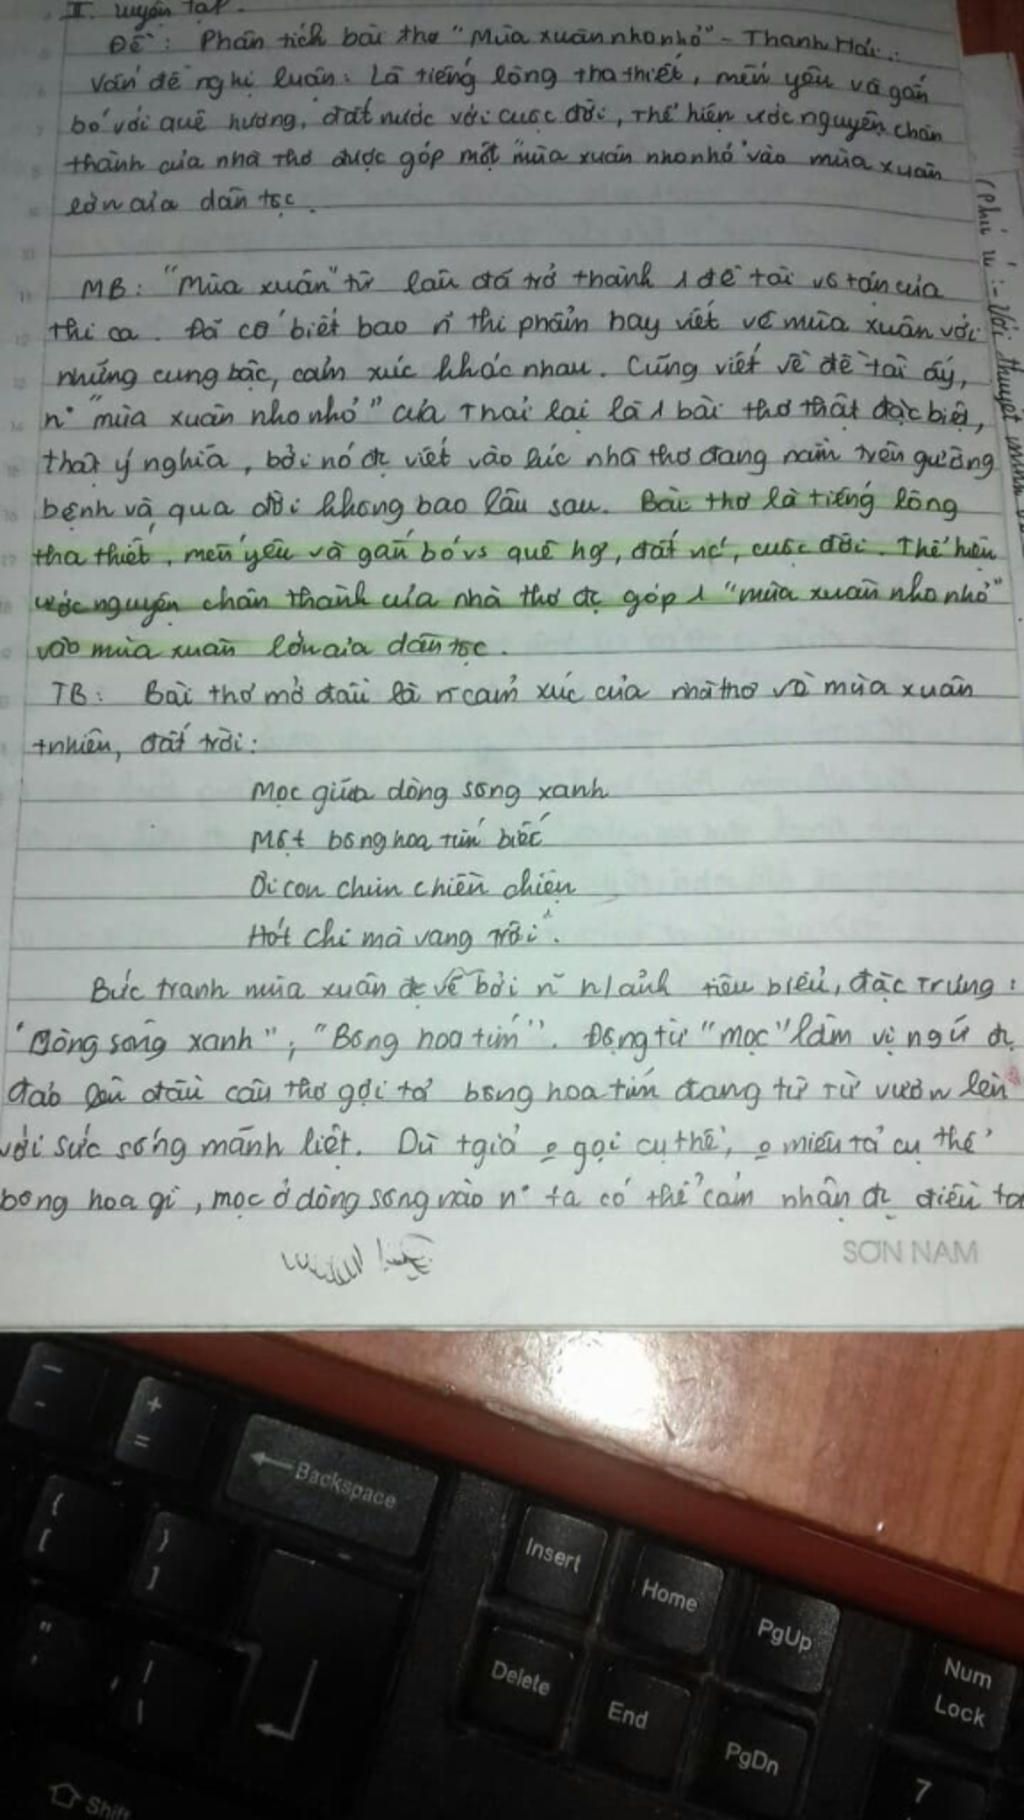 II. Luyện tập.
Đề: Phân tích bài thơ "Mùa xuân nho nhỏ" - Thanh Hải.
Vấn đề nghị luận: Là tiếng lòng tha thiết, mến yêu và gắn
bó với quê hương, đất nước với cuộc đời, thể hiện ước nguyện chân
thành của nhà thơ được góp một "mùa xuân nho nhỏ" vào mùa xuân
lớn của dân tộc.
MB: "Mùa xuân" từ lâu đã trở thành 1 đề tài vô tận của
thi ca. Đã có biết bao n~ thi phẩm hay viết về mùa xuân với
những cung bậc, cảm xúc khác nhau. Cũng viết về đề tài ấy,
n' "mùa xuân nho nhỏ" của THải lại là 1 bài thơ thật đặc biệt,
thật ý nghĩa, bởi nó đc viết vào lúc nhà thơ đang nằm trên giường
bệnh và qua đời không bao lâu sau. Bài thơ là tiếng lòng
tha thiết, mến yêu và gắn bó vs quê hg, đất nc', cuộc đời. Thể hiện
ước nguyện chân thành của nhà thơ đc góp 1 "mùa xuân nho nhỏ"
vào mùa xuân lớn của dân tộc.
TB: Bài thơ mở đầu là n~ cảm xúc của nhà thơ về mùa xuân
tnhiên, đất trời:
Mọc giữa dòng sông xanh
Một bông hoa tím biếc
Ơi con chim chiền chiện
Hót chi mà vang trời".
Bức tranh mùa xuân đc vẽ bởi n~ h/ảnh tiêu biểu, đặc trưng:
"Dòng sông xanh"; "Bông hoa tím". Động từ "mọc" làm vị ngữ đc
đảo lên đầu câu thơ gợi tả bông hoa tím đang từ từ vươn lên
với sức sống mãnh liệt. Dù tgiả o gọi cụ thể, o miêu tả cụ thể
bông hoa gì, mọc ở dòng sông nào n' ta có thể cảm nhận đc điều
SƠN NAM
(Phú ý: - Với thuyết minh
Backspace
Insert
Home
PgUp
Num
Lock
Delete
End
PgDn
7
Shift